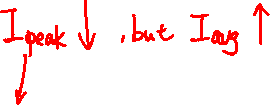 I peak ↓, but I avg ↑